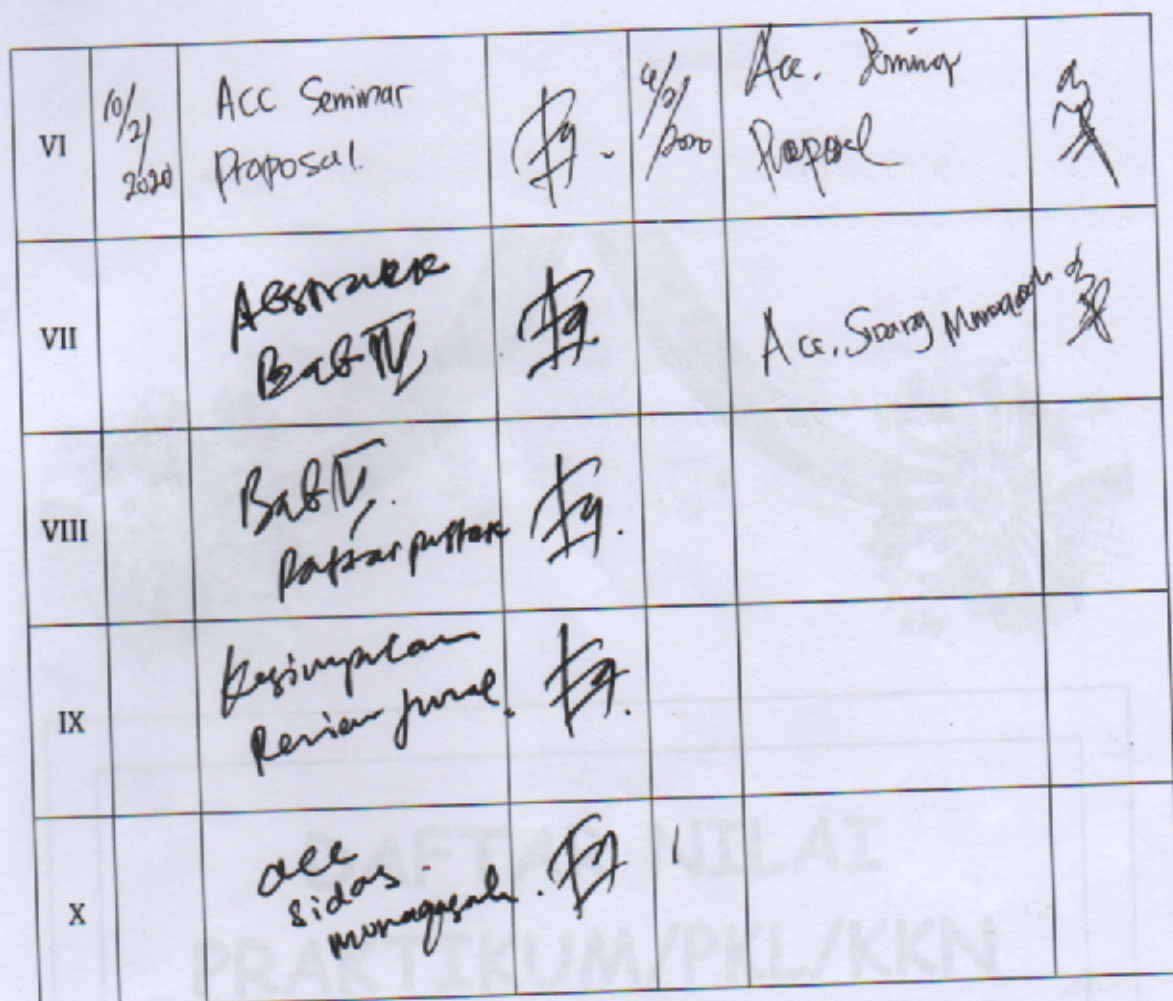 VI
10/2/2020
Acc Seminar
Proposal.
4/2/2020
Acc. Seminar
Proposal
VII
Abstrak
Bab IV
Acc. Sidang Munaqasah
VIII
Bab IV,
Daftar pustaka
IX
Kesimpulan
Review jurnal.
X
acc
sidang
munaqasah.
DAFTAR NILAI
PRAKTIKUM/PKL/KKN